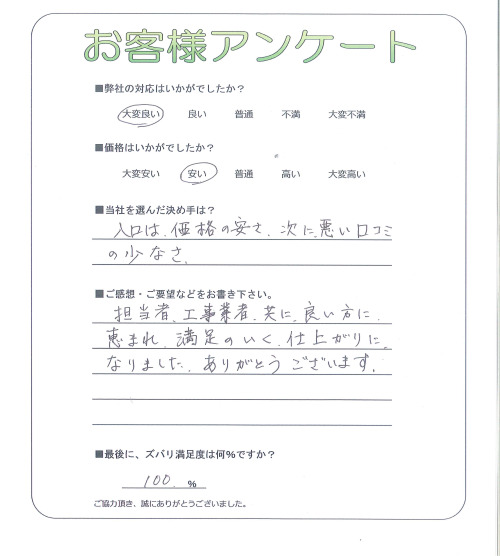 お客様アンケート
■弊社の対応はいかがでしたか？
大変良い 良い 普通 不満 大変不満
■価格はいかがでしたか？
大変安い 安い 普通 高い 大変高い
■当社を選んだ決め手は？
入口は、価格の安さ、次に、悪い口コミ
の少なさ、
■ご感想・ご要望などをお書き下さい。
担当者、工事業者、共に、良い方に、
恵まれ、満足のいく、仕上がりに、
なりました、ありがとうございます。
■最後に、ズバリ満足度は何%ですか？
100. %
ご協力頂き、誠にありがとうございました。